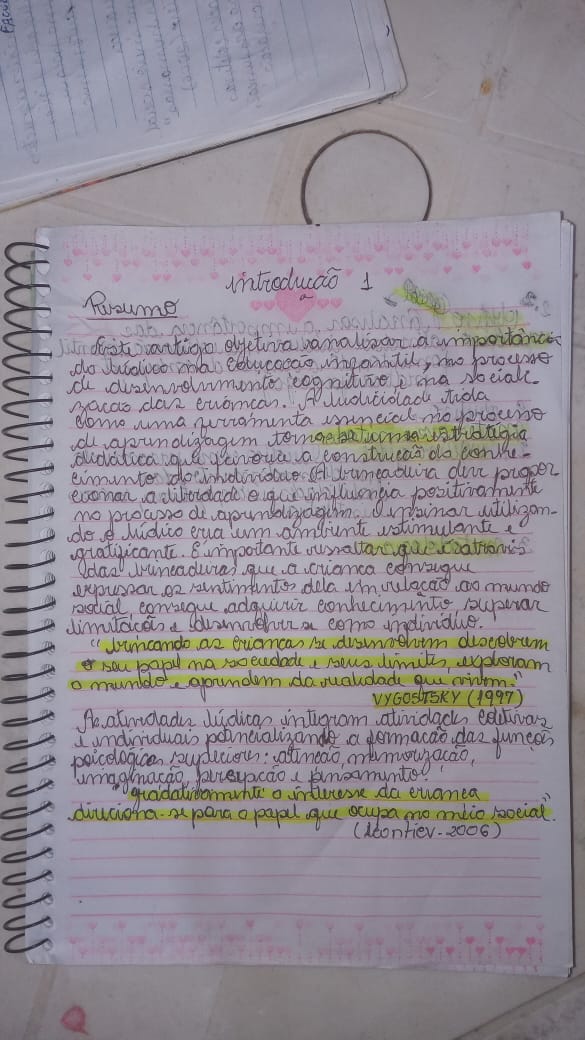 introdução 1
Resumo
Este artigo objetiva analisar a importância
do lúdico na educação infantil, no processo
de desenvolvimento cognitivo e na sociali-
zação das crianças. A ludicidade tida
como uma ferramenta essencial no processo
de aprendizagem torna-se uma estratégia
didática que favorece a construção do conhe-
cimento do indivíduo. A brincadeira deve propor
cionar a liberdade o que influencia positivamente
no processo de aprendizagem e ensinar utilizan-
do o lúdico cria um ambiente estimulante e
gratificante. É importante ressaltar que é através
das brincadeiras que a criança consegue
expressar os sentimentos dela em relação ao mundo
social, consegue adquirir conhecimento, superar
limitações e desenvolver-se como indivíduo.
"brincando as crianças se desenvolvem descobrem
o seu papel na sociedade e seus limites, exploram
o mundo e aprendem da realidade que vivem."
VYGOSTSKY (1997)
As atividades lúdicas integram atividades coletivas
e individuais potencializando a formação das funções
psicológicas superiores: atenção, memorização,
imaginação, percepção e pensamento.
"gradativamente o interesse da criança
direciona-se para o papel que ocupa no meio social".
(leontiev-2006)